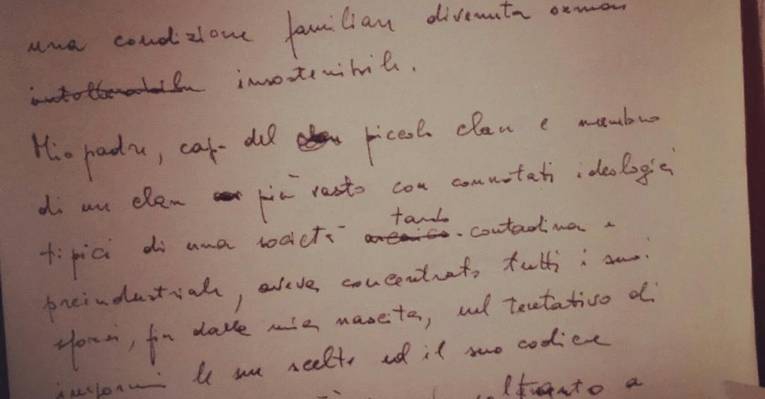 una condizione familiare divenuta ormai
intollerabile insostenibile.
Mio padre, capo del clan piccolo clan e membro
di un clan più vasto con connotati ideologici
tipici di una società arcaico- tardo contadina e
preindustriale, aveva concentrato tutti i suoi
sforzi, fin dalla mia nascita, nel tentativo di
impormi le sue scelte ed il suo codice
soltanto a